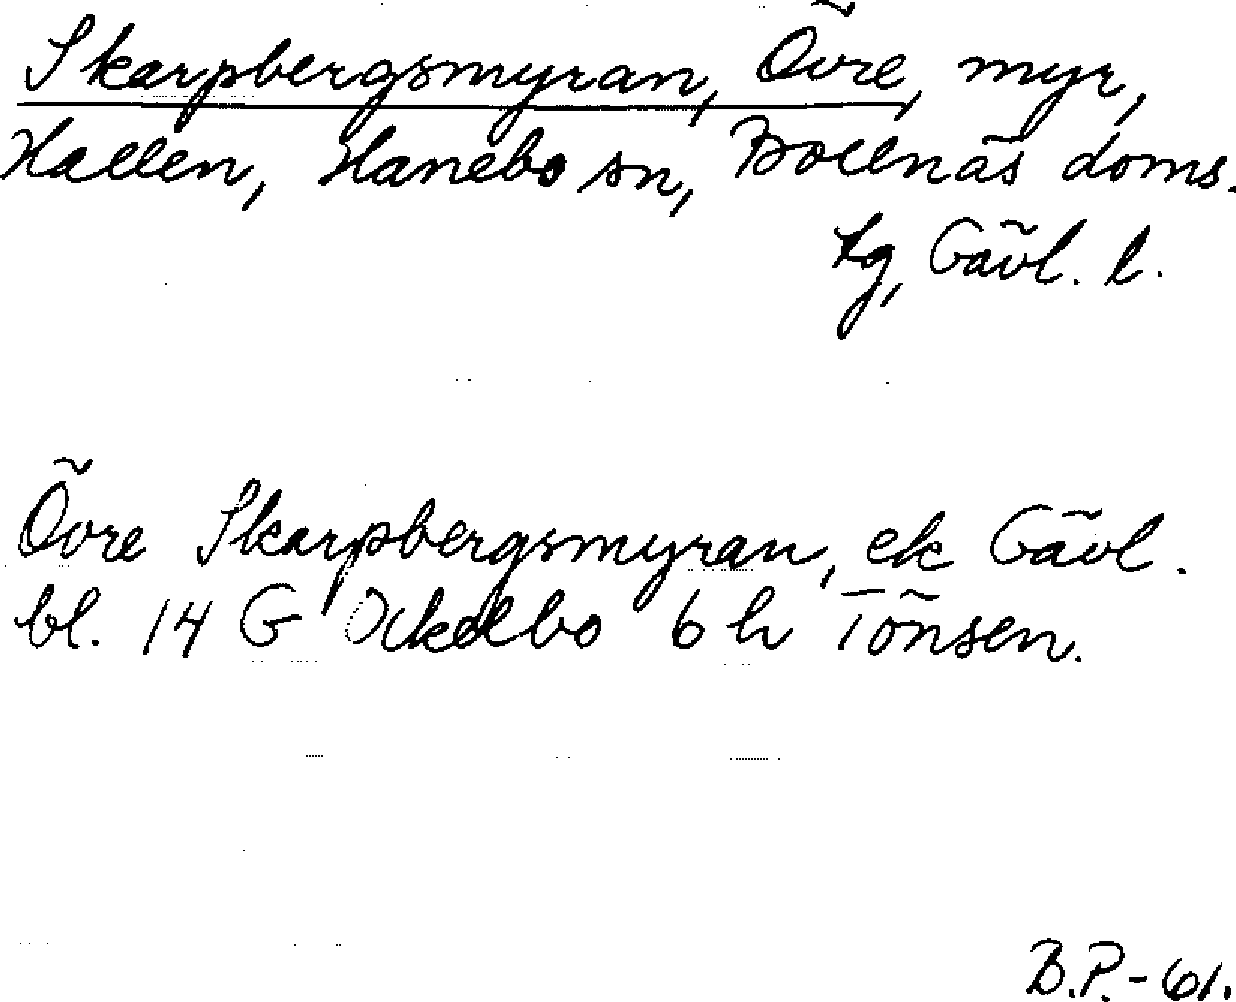 Skarpbergsmyran, Övre, myr,
Hallen, Hanebo sn, Bollnäs doms.
tg, Gävl. l.
Övre Skarpbergsmyran, ek Gävl.
bl. 14 G Ockelbo 6 h Tönsen.
B.P.-61.